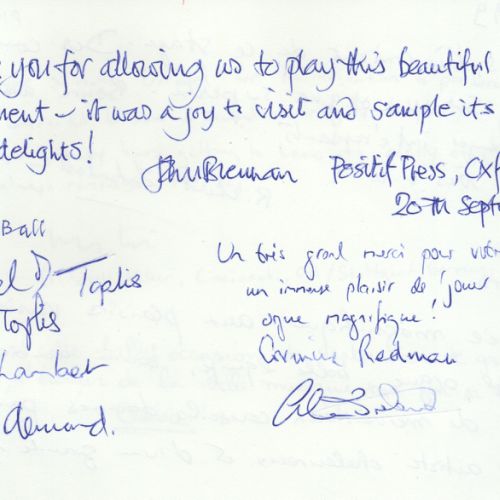 you for allowing us to play this beautiful
ment – it was a joy to visit and sample its
delights!
John Brennan Positif Press, Oxf
20th Sept
Ball
el D Toplis
Toplis
Lambert
Un très grand merci pour votr
un immense plaisir de jouer
orgue magnifique!
Corinne Redman